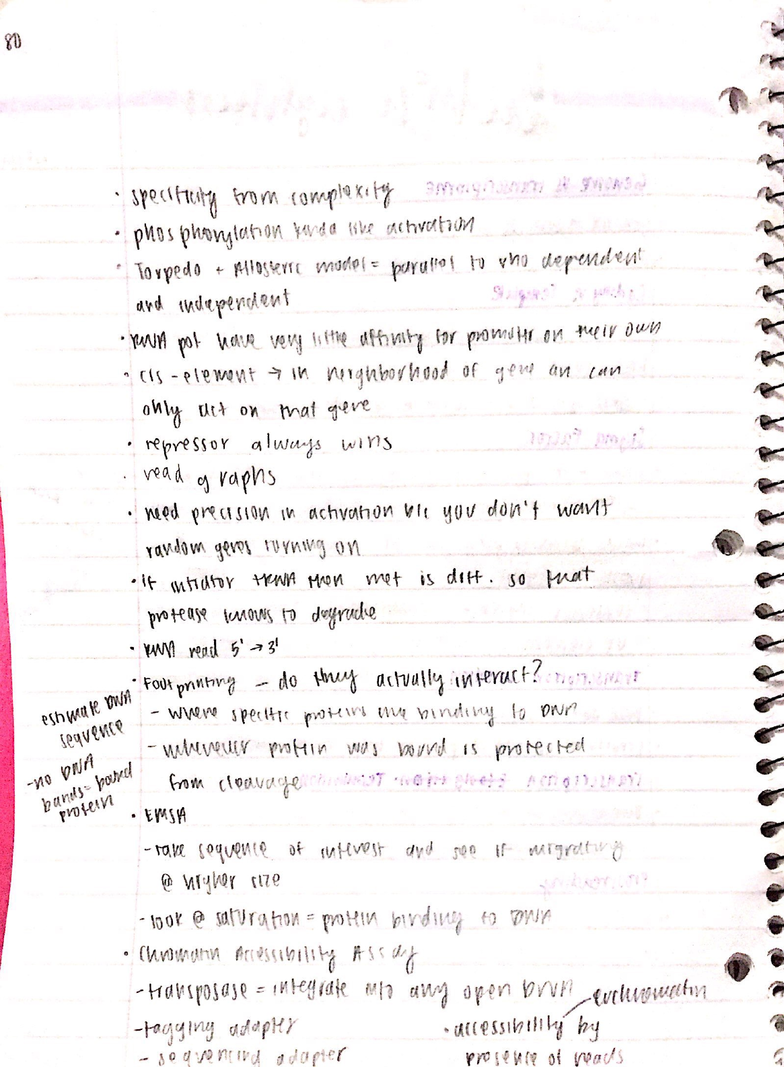 80
• specificity from complexity
• phosphorylation kinda like activation
• Torpedo + Allosteric model = parallel to rho dependent
and independent
• RNA pol have very little affinity for promoter on their own
• cis-element → in neighborhood of gene an can
only act on that gene
• repressor always wins
• read graphs
• need precision in activation b/c you don't want
random genes turning on
• If initiator tRNA then met is diff. so that
protease knows to degrade
• RNA read 5' → 3'
• Footprinting - do they actually interact?
- where specific proteins are binding to DNA
- whenever protein was bound is protected
from cleavage
estimate DNA
sequence
-no DNA
bands = bound
protein
• EMSA
- take sequence of interest and see if migrating
@ higher size
- look @ saturation = protein binding to DNA
• Chromatin Accessibility Assay
- transposase = integrate into any open DNA
euchromatin
- tagging adapter
- sequencing adapter
• accessibility by
presence of reads